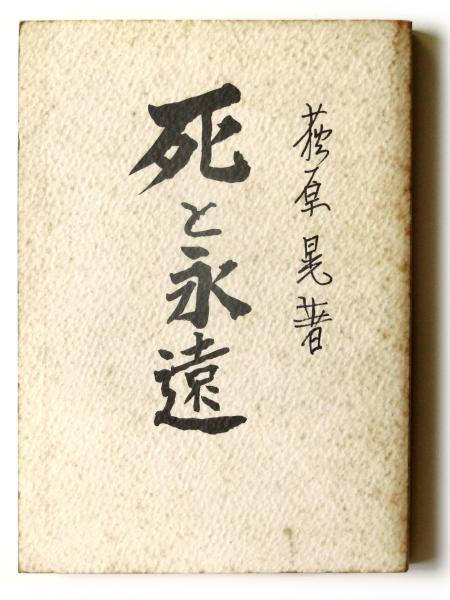 荻原晃著
死と永遠